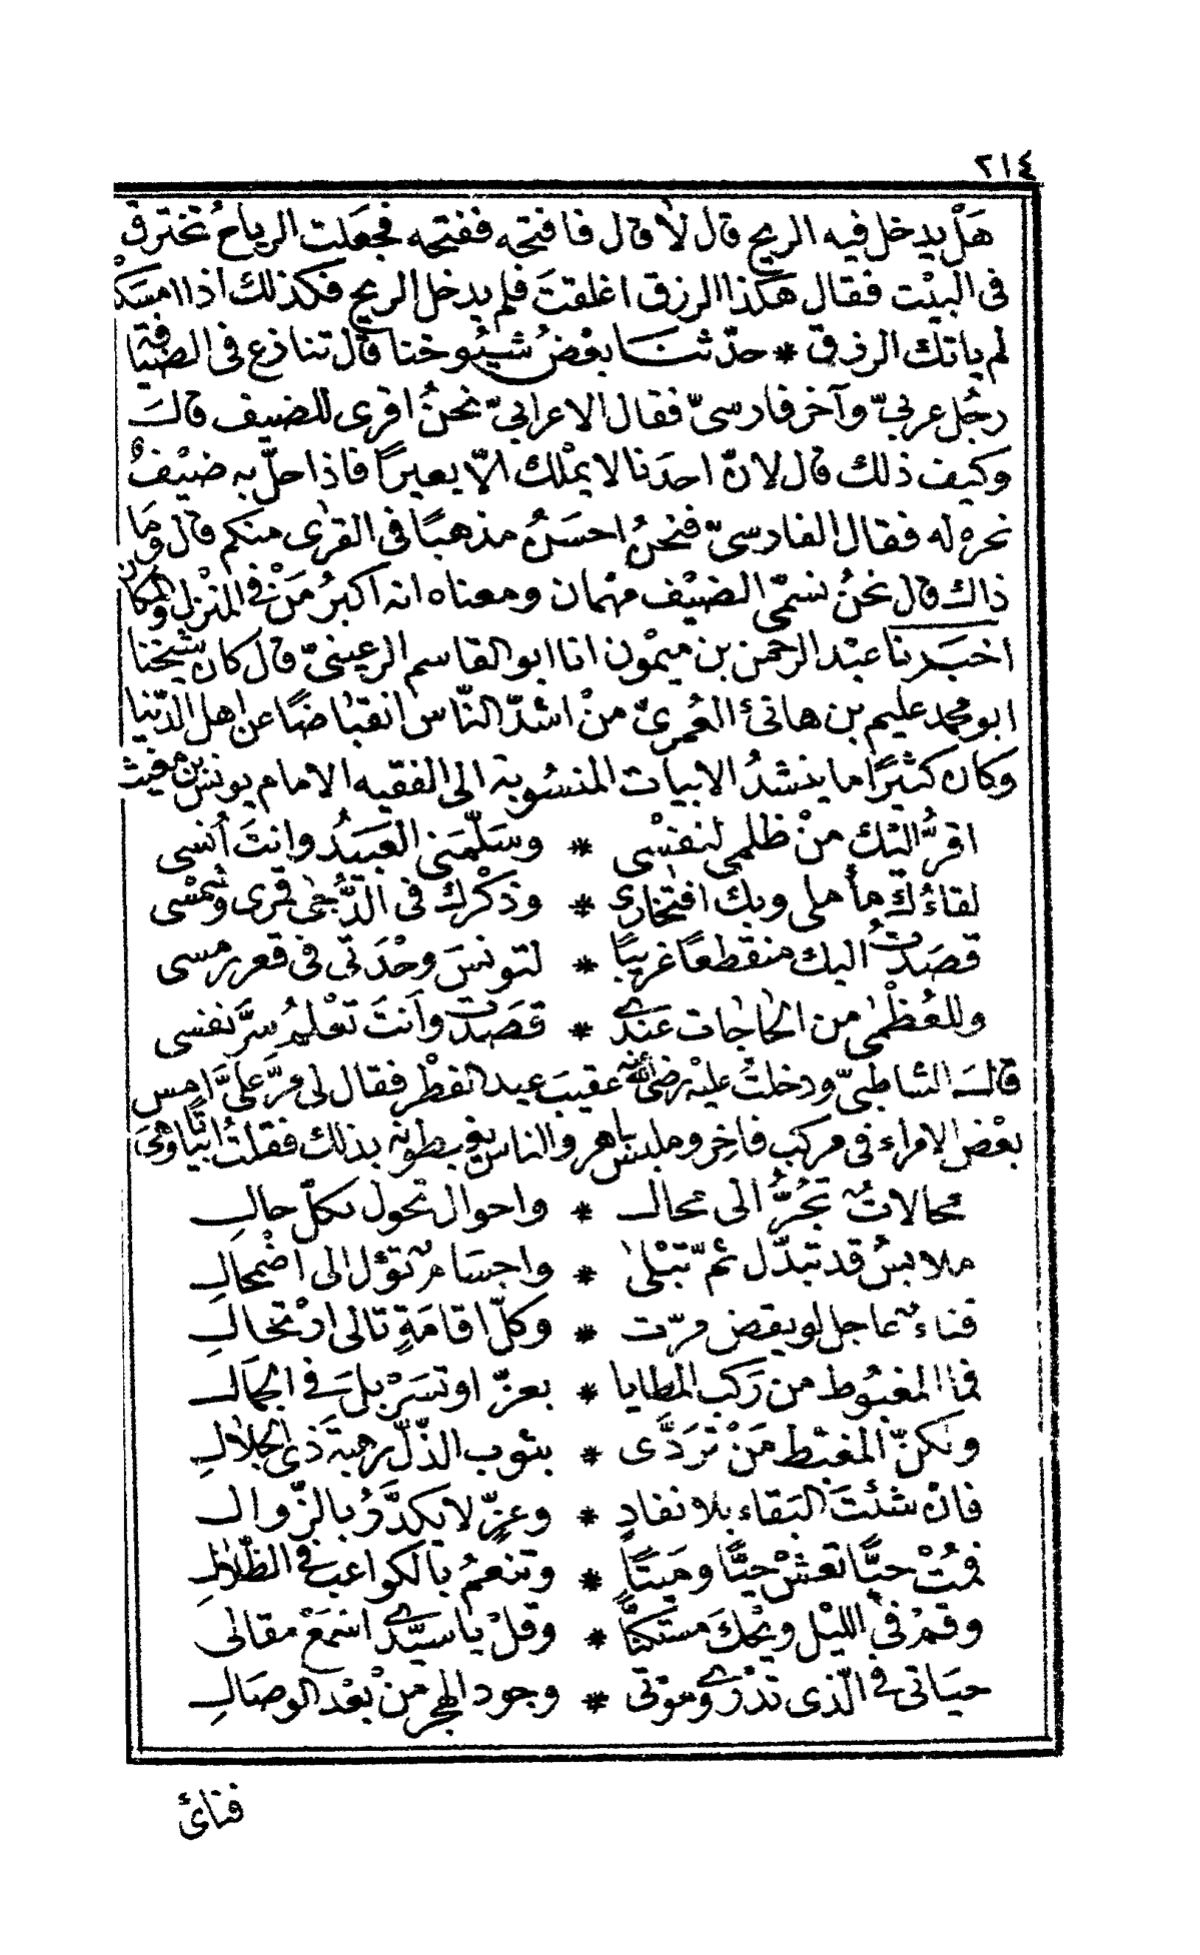 ٢١٤
هَلْ يدخل فيه الريح قال لا قال فافتحه ففتحه فجعَلت الرياحُ تخترق
فى البيْت فقال هكذا الرزق اغلقتَ فلم يدخل الريح فكذلك اذا امسَكْت
لم ياتك الرزق * حدّثنا بعْضُ شيُوخنا قال تنازع فى الضيافة
رجُل عربىّ وآخر فارسىّ فقال الاعرابىّ نحنُ اقرى للضيف قال
وكيف ذلك قال لانّ احدَنا لا يمْلك الّا بعيرًا فاذا حلّ به ضيْفٌ
نحره له فقال الفارسىّ فنحنُ احسَنُ مذهبًا فى القرى منكم قال ومَا
ذاك قال نحنُ نسمّى الضيْف مهْمان ومعناه انه اكبرُ مَنْ فى المنْزل والمكان
اخبَرنا عبْد الرحمن بن ميمْون انا ابو القاسم الرعينىّ قال كان شيْخنا
ابو محمد عليم بن هانئ العُمرىّ منْ اشدّ النّاس انقباضًا عن اهل الدّنيا
وكان كثيْرًا ما ينشدُ الابيات المنسُوبة الى الفقيه الامام يونس بن مغيث
اقرُّ اليْك منْ ظلمى لنفسْى * وسَلّمَنى العَبيدُ وانتَ اُنسى
لقاءُكَ مأملى وبك افتخارى * وذكْرك فى الدُّجى قمرى وشمْسى
قصَدتُ اليك منقطعًا غريبًا * لتونسَ وحْدَتى فى قعر رمسى
وللعُظْمى من الحاجات عندى * قصَدتُ وانتَ تعْلمُ سِرَّ نفسى
قال الشاطبىّ ودخلتُ عليْه رضى الله عنه عقيبَ عيد الفطر فقال لى مرَّ علىَّ امس
بعْض الامراء فى مركب فاخر وملبس باهر والناس يغبطونه بذلك فقلتُ ابياتًا وهى
محالاتٌ تجُرُّ الى محال * واحوال تحول بكلّ حالِ
ملابسُ قد تبدّل ثمّ تبْلى * واجسَامٌ تؤل الى اضْمحالِ
فناءٌ عاجل لو بقض مرّت * وكلّ اقامَةٍ تالى ارْتحالِ
فما المغبُوط من رَكبَ المطايا * بعزّ او تسَرْبلَ فى الجمَال
ولكنّ المغتبط مَنْ تردَّى * بثوب الذّلّ رهبة ذى الجلالِ
فان شئتَ البَقاء بلا نفادٍ * وعزٍّ لا يكدَّرُ بالزّوال
فمُتْ حيًّا تعشْ حيًّا ومَيتًا * وتنعمُ بالكواعب فى الظّلالِ
وقمْ فى الليْل ويْحكَ مستكنًّا * وقلْ يا سيّدى اسْمَعْ مقالى
حيَاتى فى الّذى تدْرى وموْتى * وجود الهجر منْ بعْد الوصَالِ
فنائ